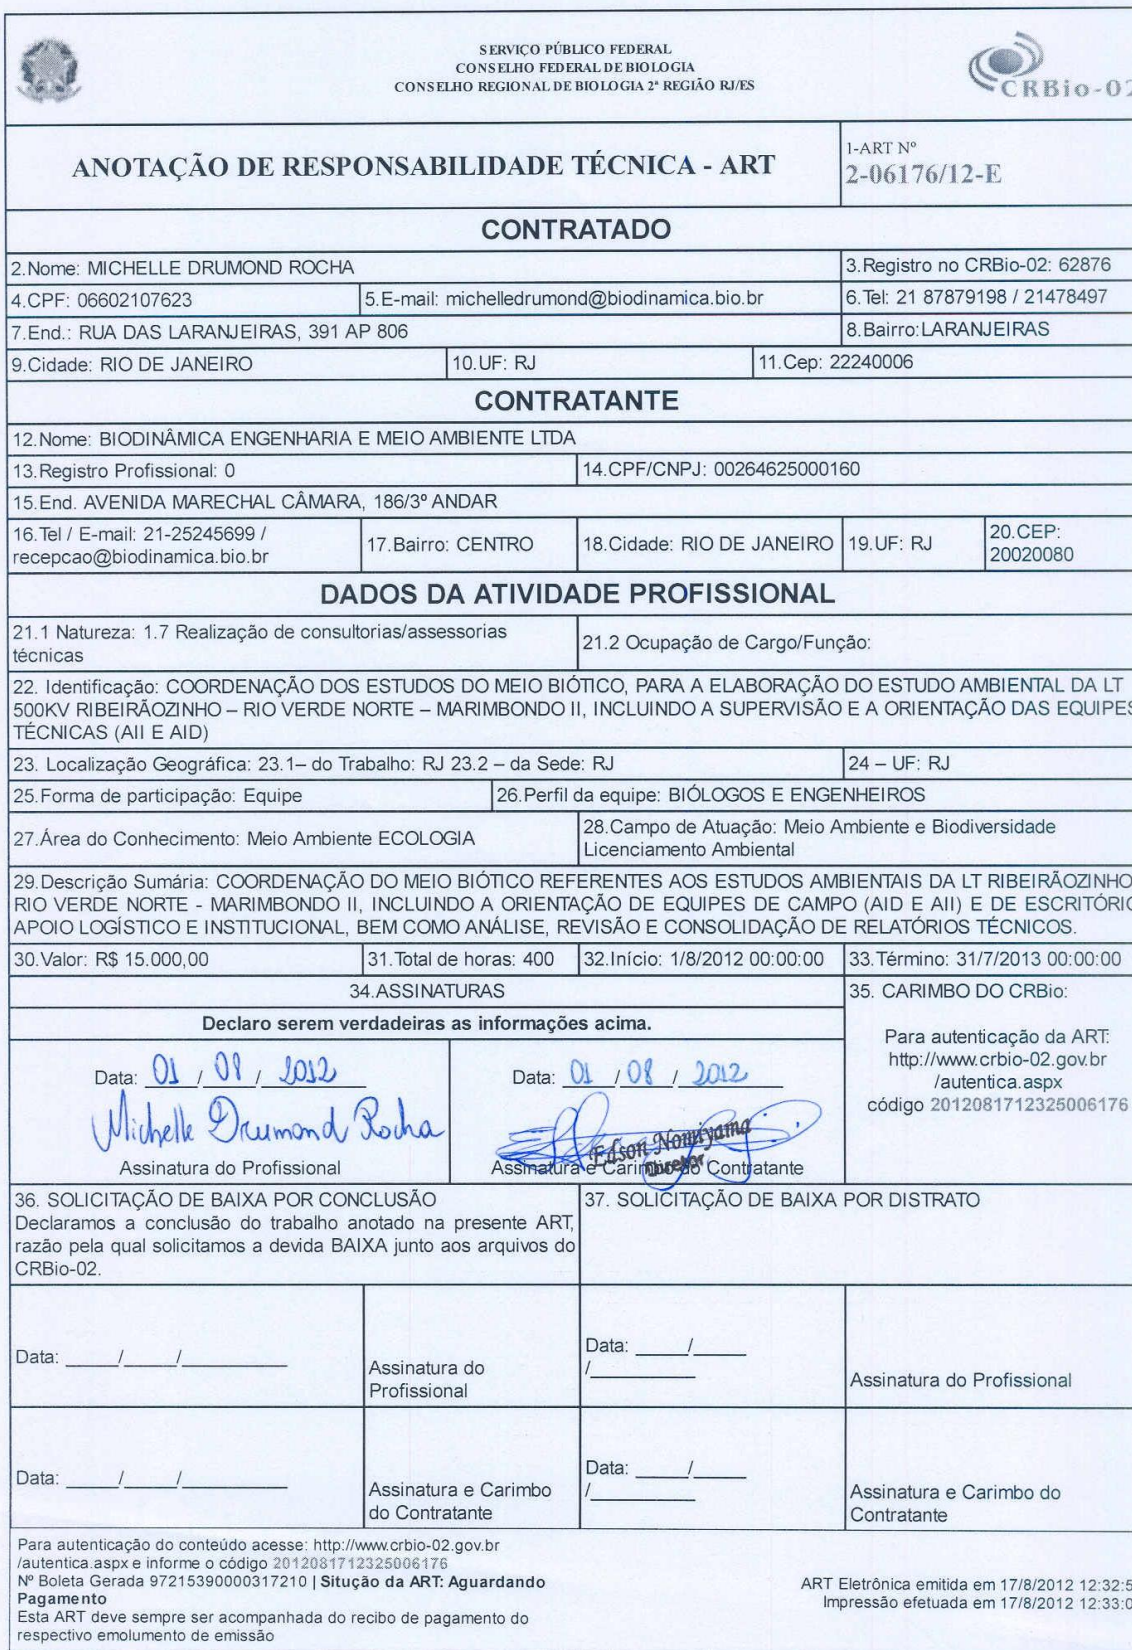 SERVIÇO PÚBLICO FEDERAL
CONSELHO FEDERAL DE BIOLOGIA
CONSELHO REGIONAL DE BIOLOGIA 2ª REGIÃO RJ/ES
CRBio-02
ANOTAÇÃO DE RESPONSABILIDADE TÉCNICA - ART
1-ART Nº
2-06176/12-E
CONTRATADO
2.Nome: MICHELLE DRUMOND ROCHA
3.Registro no CRBio-02: 62876
4.CPF: 06602107623
5.E-mail: michelledrumond@biodinamica.bio.br
6.Tel: 21 87879198 / 21478497
7.End.: RUA DAS LARANJEIRAS, 391 AP 806
8.Bairro:LARANJEIRAS
9.Cidade: RIO DE JANEIRO
10.UF: RJ
11.Cep: 22240006
CONTRATANTE
12.Nome: BIODINÂMICA ENGENHARIA E MEIO AMBIENTE LTDA
13.Registro Profissional: 0
14.CPF/CNPJ: 00264625000160
15.End. AVENIDA MARECHAL CÂMARA, 186/3º ANDAR
16.Tel / E-mail: 21-25245699 /
recepcao@biodinamica.bio.br
17.Bairro: CENTRO
18.Cidade: RIO DE JANEIRO
19.UF: RJ
20.CEP:
20020080
DADOS DA ATIVIDADE PROFISSIONAL
21.1 Natureza: 1.7 Realização de consultorias/assessorias
técnicas
21.2 Ocupação de Cargo/Função:
22. Identificação: COORDENAÇÃO DOS ESTUDOS DO MEIO BIÓTICO, PARA A ELABORAÇÃO DO ESTUDO AMBIENTAL DA LT
500KV RIBEIRÃOZINHO – RIO VERDE NORTE – MARIMBONDO II, INCLUINDO A SUPERVISÃO E A ORIENTAÇÃO DAS EQUIPES
TÉCNICAS (AII E AID)
23. Localização Geográfica: 23.1– do Trabalho: RJ 23.2 – da Sede: RJ
24 – UF: RJ
25.Forma de participação: Equipe
26.Perfil da equipe: BIÓLOGOS E ENGENHEIROS
27.Área do Conhecimento: Meio Ambiente ECOLOGIA
28.Campo de Atuação: Meio Ambiente e Biodiversidade
Licenciamento Ambiental
29.Descrição Sumária: COORDENAÇÃO DO MEIO BIÓTICO REFERENTES AOS ESTUDOS AMBIENTAIS DA LT RIBEIRÃOZINHO
RIO VERDE NORTE - MARIMBONDO II, INCLUINDO A ORIENTAÇÃO DE EQUIPES DE CAMPO (AID E AII) E DE ESCRITÓRIO
APOIO LOGÍSTICO E INSTITUCIONAL, BEM COMO ANÁLISE, REVISÃO E CONSOLIDAÇÃO DE RELATÓRIOS TÉCNICOS.
30.Valor: R$ 15.000,00
31.Total de horas: 400
32.Início: 1/8/2012 00:00:00
33.Término: 31/7/2013 00:00:00
34.ASSINATURAS
35. CARIMBO DO CRBio:
Declaro serem verdadeiras as informações acima.
Para autenticação da ART:
http://www.crbio-02.gov.br
/autentica.aspx
código 2012081712325006176
Data: 01 / 08 / 2012
Michelle Drumond Rocha
Assinatura do Profissional
Data: 01 / 08 / 2012
Edson Nomiyama
Diretor
Assinatura e Carimbo do Contratante
36. SOLICITAÇÃO DE BAIXA POR CONCLUSÃO
Declaramos a conclusão do trabalho anotado na presente ART,
razão pela qual solicitamos a devida BAIXA junto aos arquivos do
CRBio-02.
37. SOLICITAÇÃO DE BAIXA POR DISTRATO
Data: _____/_____/__________
Assinatura do
Profissional
Data: _____/_____
/__________
Assinatura do Profissional
Data: _____/_____/__________
Assinatura e Carimbo
do Contratante
Data: _____/_____
/__________
Assinatura e Carimbo do
Contratante
Para autenticação do conteúdo acesse: http://www.crbio-02.gov.br
/autentica.aspx e informe o código 2012081712325006176
Nº Boleta Gerada 97215390000317210 | Situção da ART: Aguardando
Pagamento
Esta ART deve sempre ser acompanhada do recibo de pagamento do
respectivo emolumento de emissão
ART Eletrônica emitida em 17/8/2012 12:32:5
Impressão efetuada em 17/8/2012 12:33:0